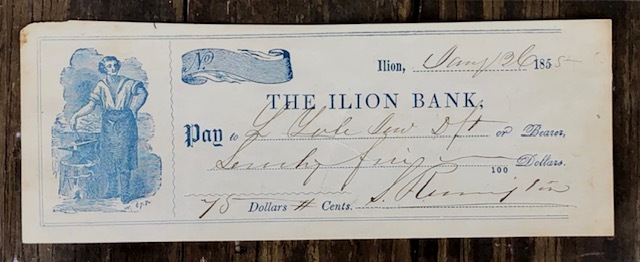 No.
Ilion, Jany 26 1855
THE ILION BANK,
Pay to or Bearer,
Seventy five Dollars.
100
75 Dollars Cents. S. Remington